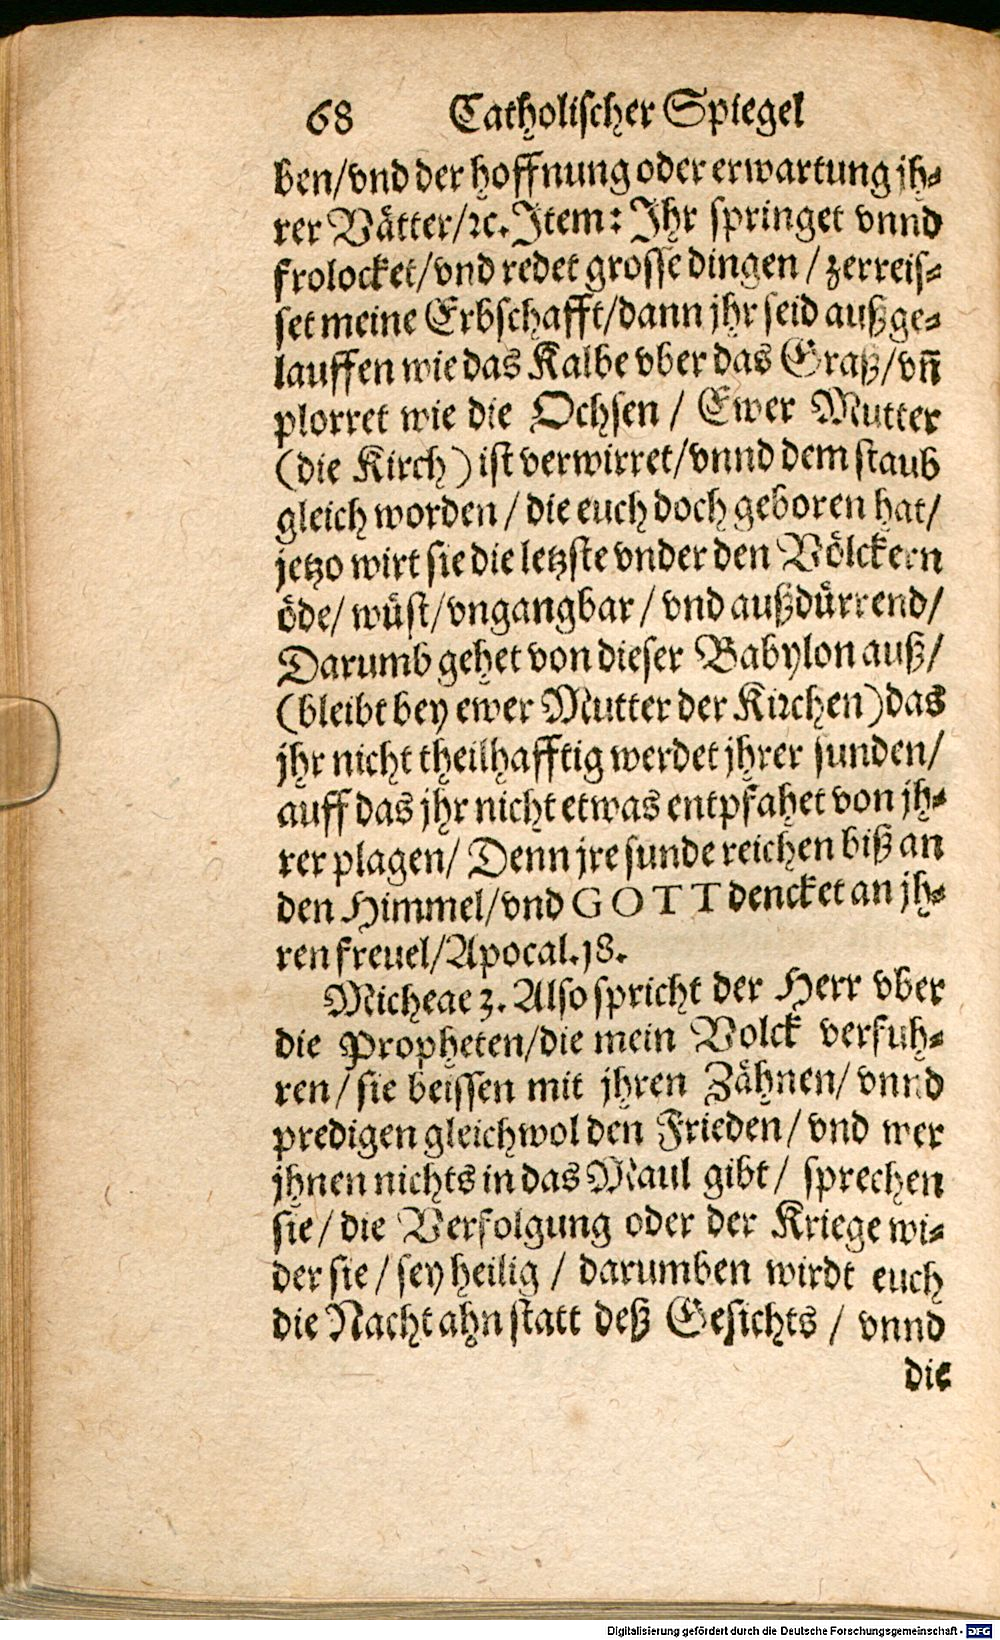 68 Catholischer Spiegel
ben/vnd der hoffnung oder erwartung jh⸗
rer Vätter/ꝛc. Item: Ihr springet vnnd
frolocket/vnd redet grosse dingen / zerreis⸗
set meine Erbschafft/dann jhr seid außge⸗
lauffen wie das Kalbe vber das Graß/vn̄
plorret wie die Ochsen / Ewer Mutter
(die Kirch) ist verwirret/vnnd dem staub
gleich worden / die euch doch geboren hat/
jetzo wirt sie die letzste vnder den Völckern
öde/ wüst/vngangbar / vnd außdürrend/
Darumb gehet von dieser Babylon auß/
(bleibt bey ewer Mutter der Kirchen) das
jhr nicht theilhafftig werdet jhrer sunden/
auff das jhr nicht etwas entpfahet von jh⸗
rer plagen/ Denn jre sunde reichen biß an
den Himmel/vnd GOTT dencket an jh⸗
ren freuel/Apocal.18.
Micheae 3. Also spricht der Herr vber
die Propheten/die mein Volck verfuh⸗
ren / sie beissen mit jhren Zähnen/ vnnd
predigen gleichwol den Frieden / vnd wer
jhnen nichts in das Maul gibt / sprechen
sie / die Verfolgung oder der Kriege wi⸗
der sie / sey heilig / darumben wirdt euch
die Nacht ahn statt deß Gesichts / vnnd
die
Digitalisierung gefördert durch die Deutsche Forschungsgemeinschaft - DFG